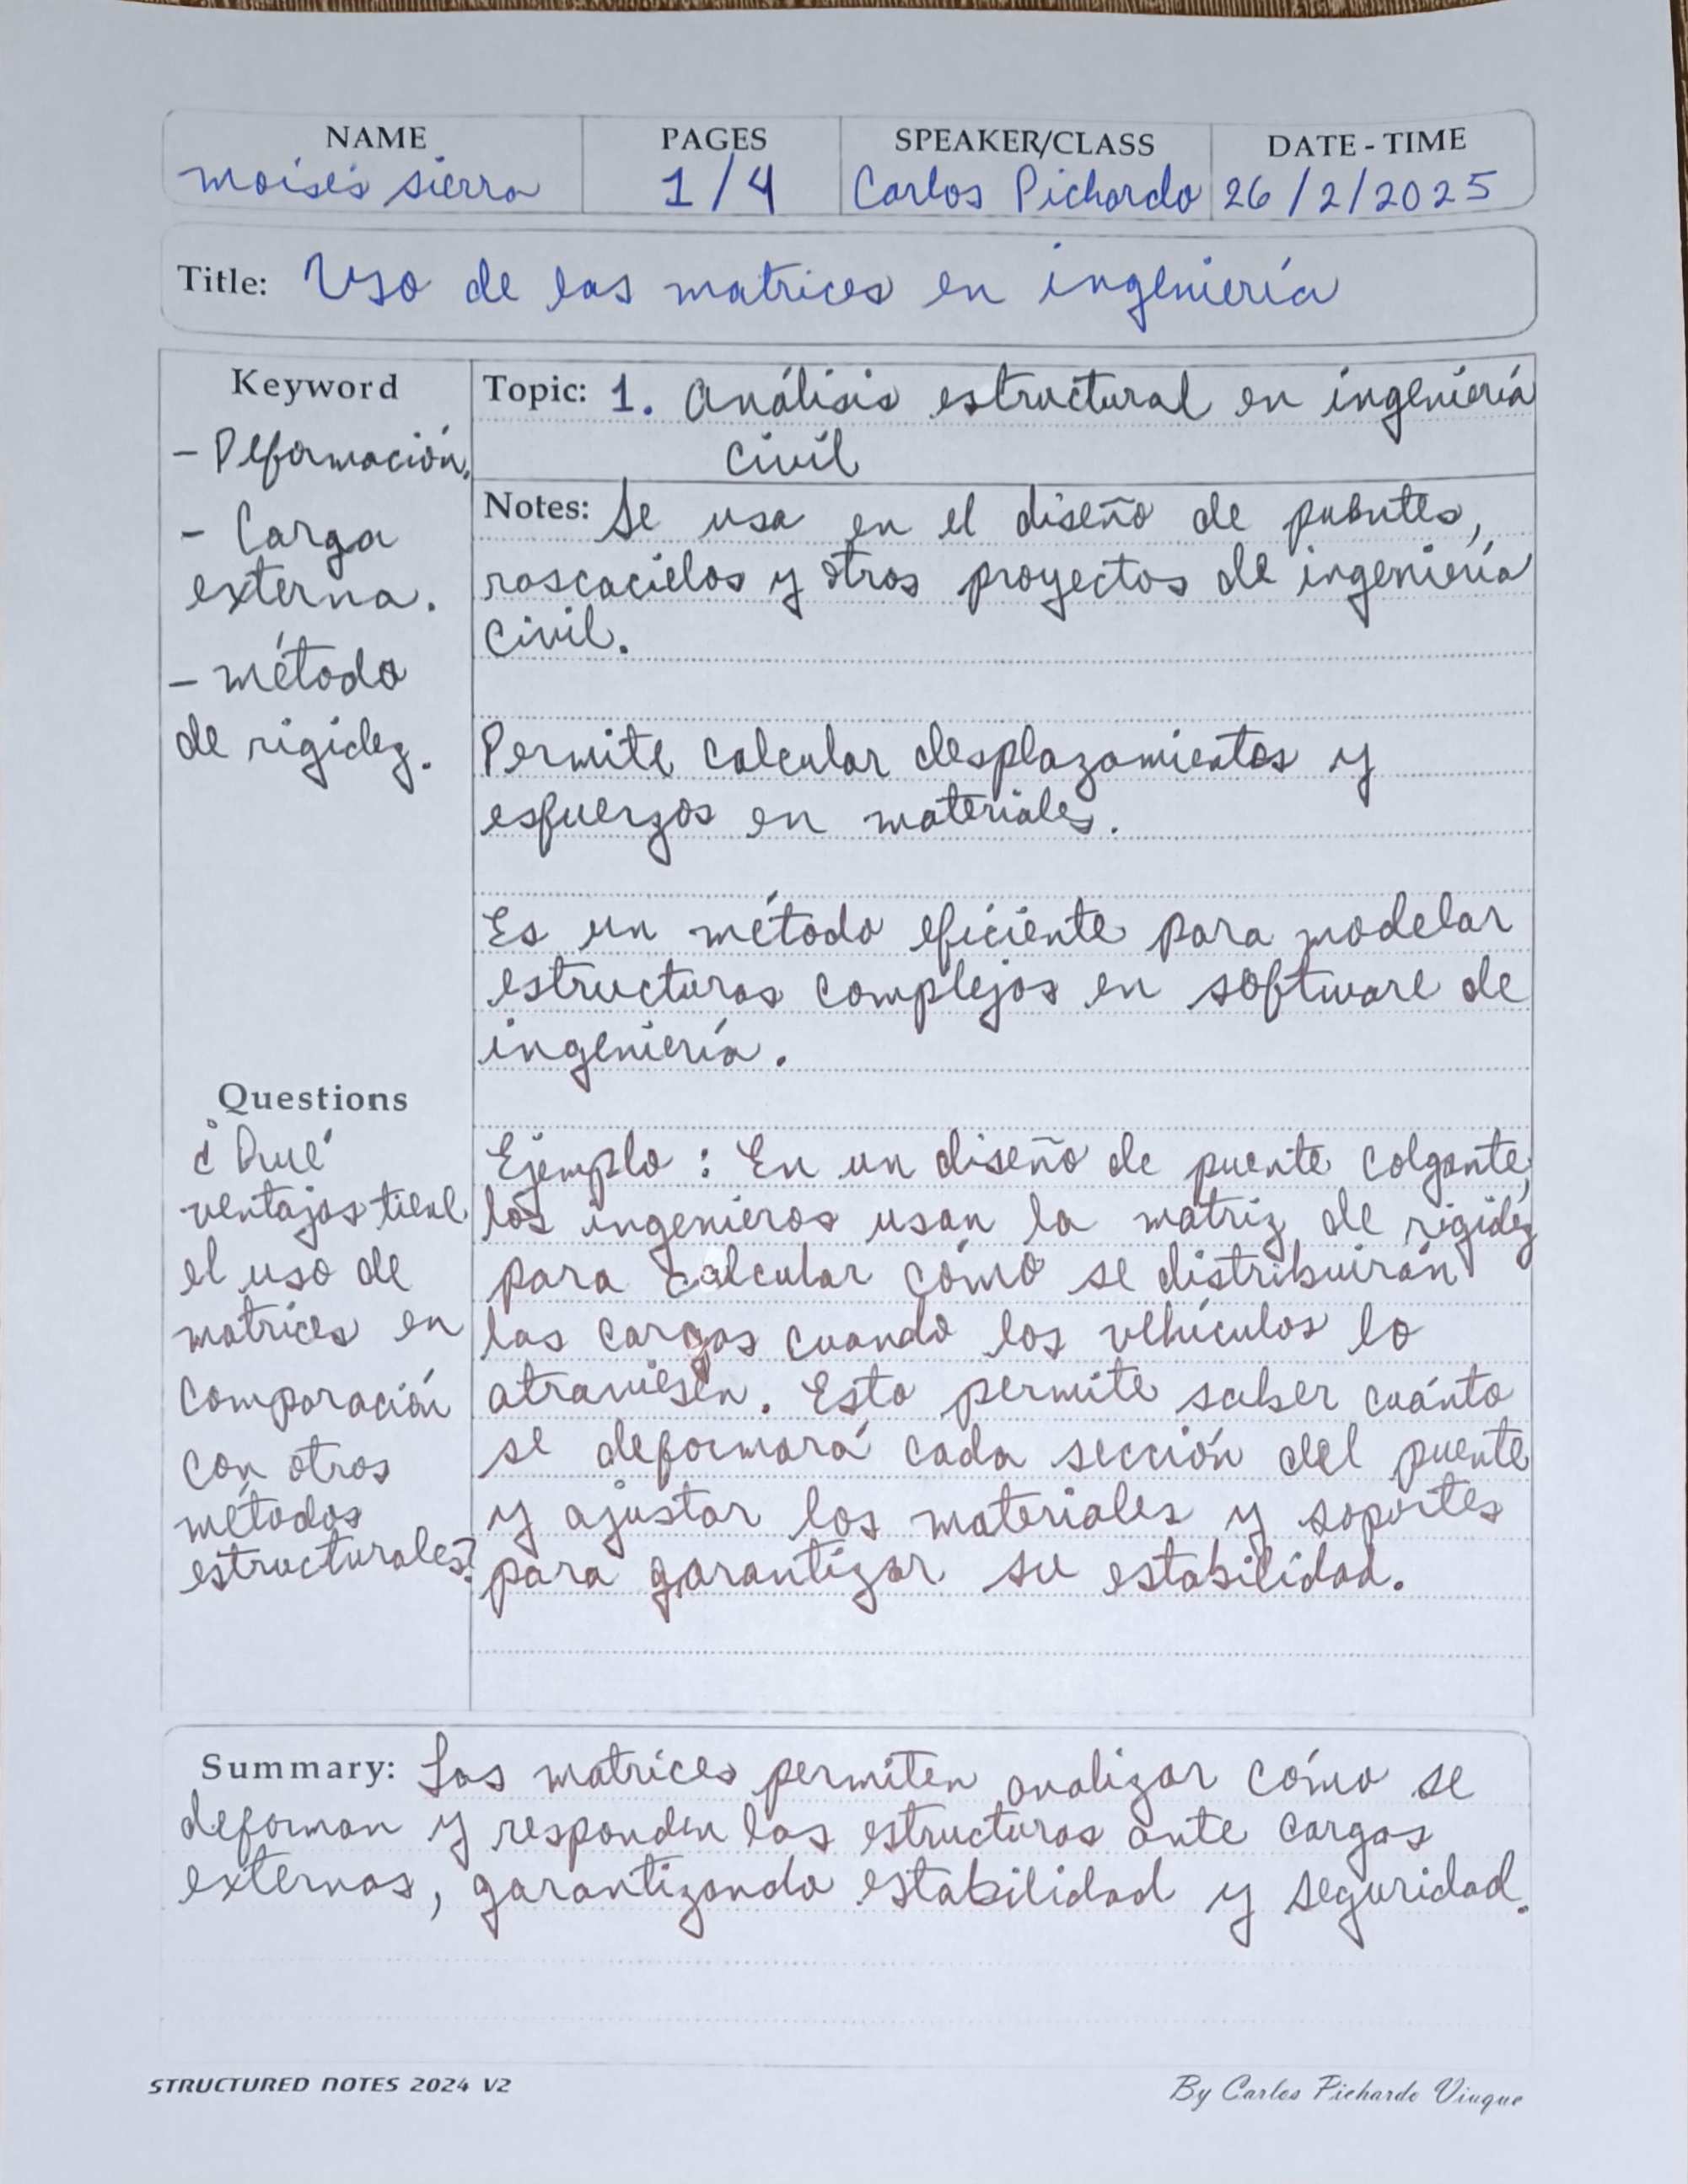 NAME PAGES SPEAKER/CLASS DATE - TIME
Moisés Sierra 1/4 Carlos Pichardo 26/2/2025
Title: Uso de las matrices en ingeniería
Keyword
- Deformación.
- Carga
externa.
- método
de rigidez.
Topic: 1. Análisis estructural en ingeniería
civil
Notes: Se usa en el diseño de puentes,
rascacielos y otros proyectos de ingeniería
civil.
Permite calcular desplazamientos y
esfuerzos en materiales.
Es un método eficiente para modelar
estructuras complejas en software de
ingeniería.
Ejemplo: En un diseño de puente colgante,
los ingenieros usan la matriz de rigidez
para calcular cómo se distribuirán
las cargas cuando los vehículos lo
atraviesen. Esto permite saber cuánto
se deformará cada sección del puente
y ajustar los materiales y soportes
para garantizar su estabilidad.
Questions
¿Qué
ventajas tiene
el uso de
matrices en
comparación
con otros
métodos
estructurales?
Summary: Las matrices permiten analizar cómo se
deforman y responden las estructuras ante cargas
externas, garantizando estabilidad y seguridad.
STRUCTURED NOTES 2024 V2
By Carlos Pichardo Viuque